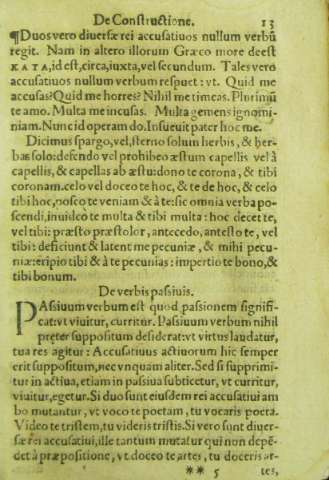 De Constructione. 13
¶Duos vero diuersæ rei accusatiuos nullum verbũ
regit. Nam in altero illorum Græco more deest
ΚΑΤΑ, id est, circa, iuxta, vel secundum. Tales vero
accusatiuos nullum verbum respuet: vt. Quid me
accusas? Quid me horres? Nihil me timeas. Plurimũ
te amo. Multa me incusas. Multa gemens ignomi-
niam. Nunc id operam do. Insueuit pater hoc me.
Dicimus spargo, vel, sterno solum herbis, & her-
bas solo: defendo vel prohibeo æstum capellis vel à
capellis, & capellas ab æstu: dono te corona, & tibi
coronam. celo vel doceo te hoc, & te de hoc, & celo
tibi hoc, posco te veniam & à te: sic omnia verba po-
scendi, inuideo te multa & tibi multa: hoc decet te,
vel tibi: præsto præstolor, antecedo, antesto te, vel
tibi: deficiunt & latent me pecuniæ, & mihi pecu-
niæ: eripio tibi & à te pecunias: impertio te bono, &
tibi bonum.
De verbis passiuis.
PAssiuum verbum est quod passionem signifi-
cat: vt viuitur, curritur. Passiuum verbum nihil
preter suppositum desiderat: vt virtus laudatur,
tua res agitur: Accusatiuus actiuorum hic semper
erit suppositum, nec vnquam aliter. Sed si supprimi-
tur in actiua, etiam in passiua subticetur, vt curritur,
viuitur, egetur. Si duo sunt eiusdem rei accusatiui am
bo mutantur, vt voco te poetam, tu vocaris poeta.
Video te tristem, tu videris tristis. Si vero sunt diuer-
sæ rei accusatiui, ille tantum mutatur qui non depẽ-
det à præpositione, vt doceo te artes, tu doceris ar-
** 5 tes,